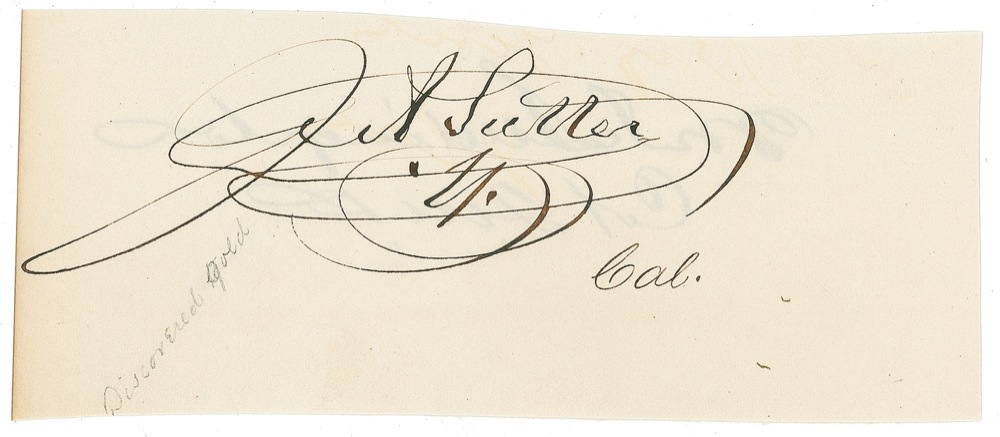 J A Sutter
Cal.
Discovered Gold